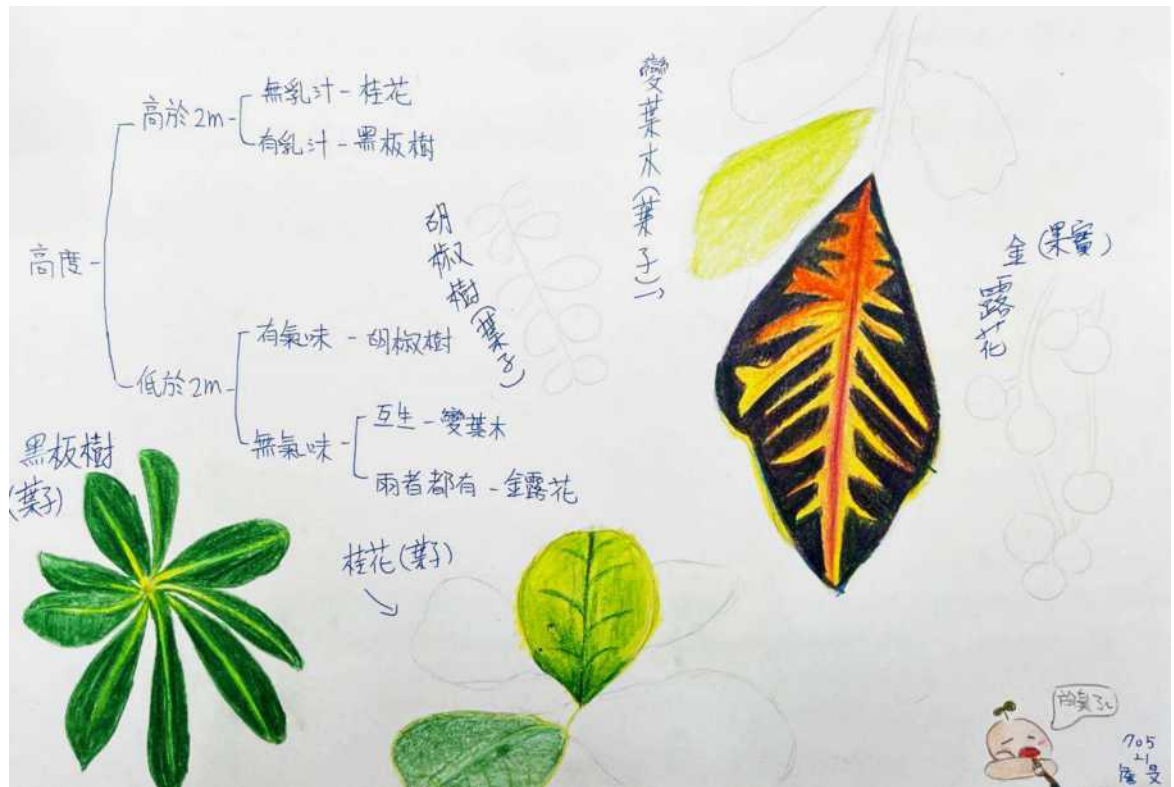 高度
高於2m
無乳汁-桂花
有乳汁-黑板樹
低於2m
有氣味-胡椒樹
無氣味
互生-變葉木
兩者都有-金露花
胡椒樹(葉子)
變葉木(葉子)→
金露花(果實)
黑板樹
(葉子)
桂花(葉子)
放棄了~
705
21